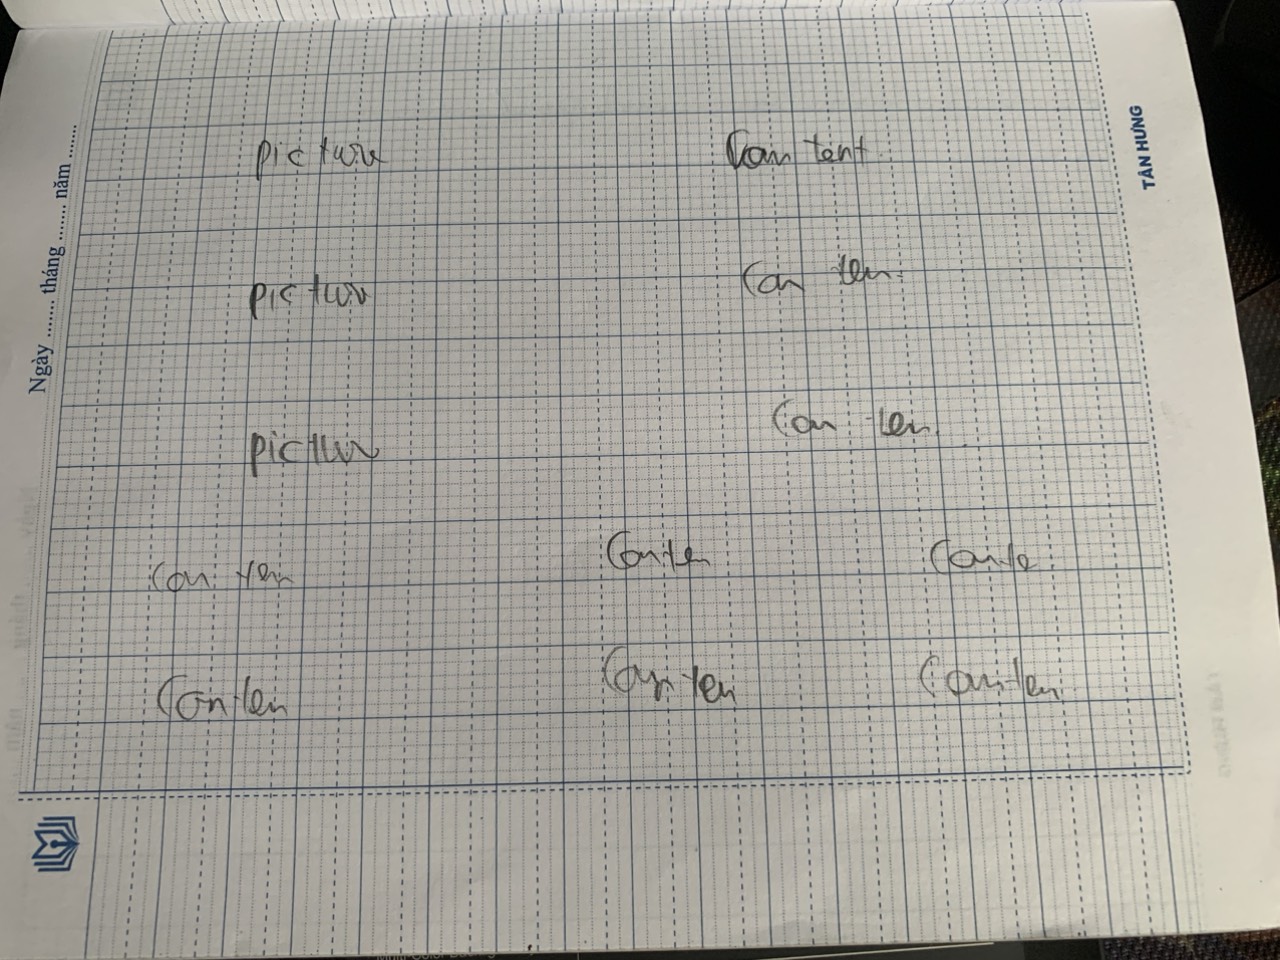 Ngày ....... tháng ....... năm .......
TÂN HƯNG
picture Content
pictur Con ten
pictur Con ten
Con ten Conten Conte
Conten Conten Conten